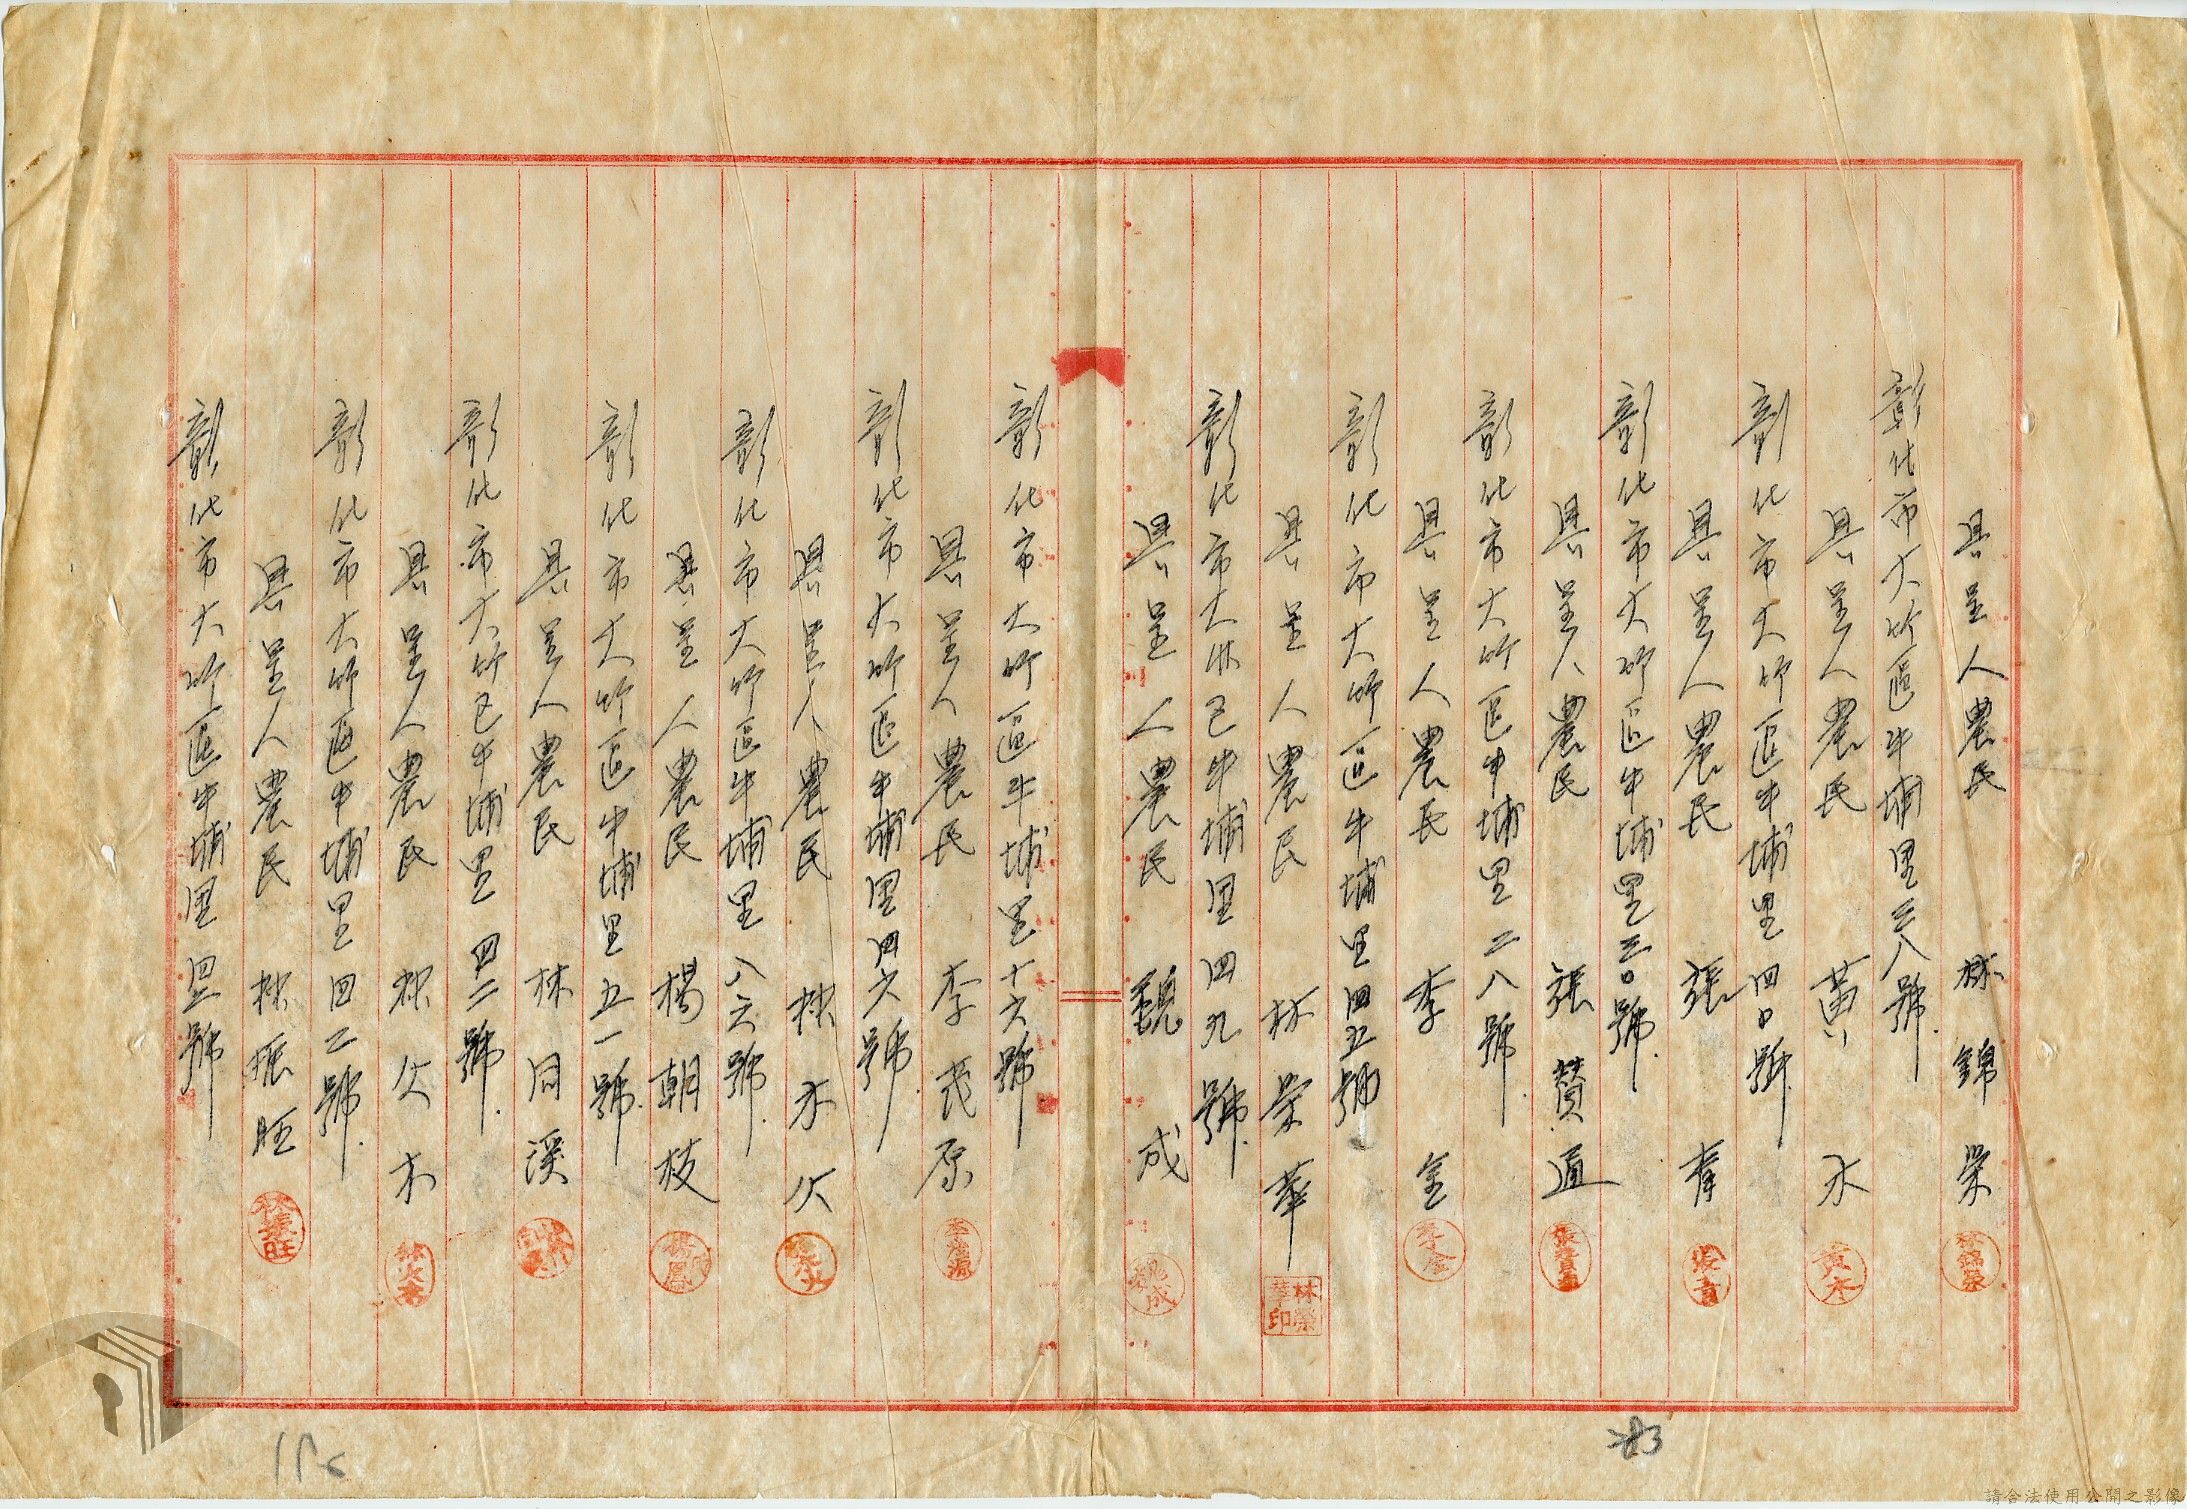 具呈人農民 林錦榮
林錦榮
彰化市大竹區牛埔里三八號
具呈人農民 黃水
黃水
彰化市大竹區牛埔里四0號
具呈人農民 張青
張青
彰化市大竹區牛埔里三0號
具呈人農民 張贊道
彰化市大竹區牛埔里二八號
具呈人農民 李金
李金
彰化市大竹區牛埔里四五號
具呈人農民 林荣華
林榮華印
彰化市大竹区牛埔里四九號
具呈人農民 魏成
魏成
彰化市大竹區牛埔里十六號
具呈人農民 李茂原
彰化市大竹區牛埔里四六號
具呈人農民 林水火
彰化市大竹區牛埔里八六號
具呈人農民 楊朝枝
彰化市大竹區牛埔里五一號
具呈人農民 林同溪
彰化市大竹区牛埔里四二號
具呈人農民 林火木
彰化市大竹區牛埔里四二號
具呈人農民 林振旺
林振旺
彰化市大竹區牛埔里 號
請合法使用公開之影像